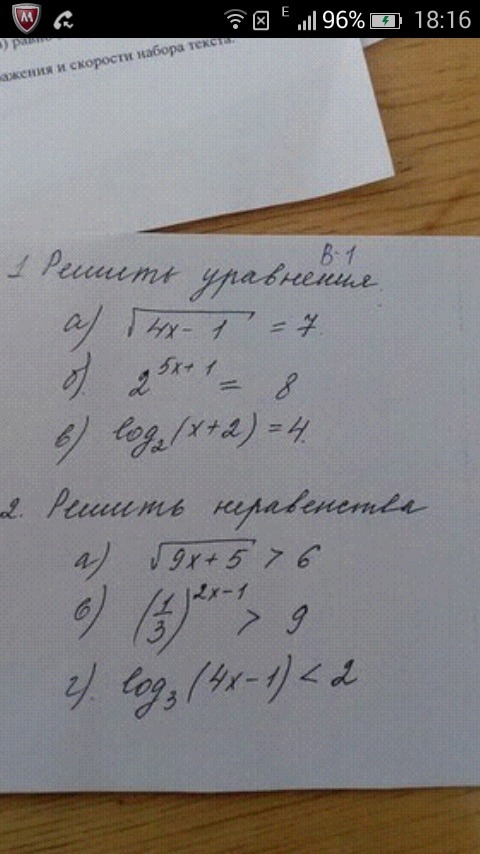 E 96% 18:16
ражения и скорости набора текста.
В-1
1 Решить уравнения.
а) √(4x - 1) = 7
б). 2^(5x+1) = 8
в) log₂(x+2) = 4.
2. Решить неравенства
а) √(9x+5) > 6
в) (1/3)^(2x-1) > 9
г). log₃(4x-1) < 2